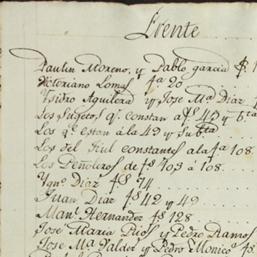 Frente
Paulin Moreno, y Pablo garcia f.s 1
Victoriano Lomas f.a 20
Ysidro Aguilera y Jose M.a Diaz f
Los Sugetos q.e constan a f.s 47 y b.ta
Los q.e estan á la 49 y su b.ta
Los del Riul constantes a la f.a 108.
Los Peñoleros de f.s 103 á 108.
Ygn.o Diaz f.s 74
Juan Diaz f.s 42 y 49
Man.l Hernandez f.s 128
Jose Maria Rios y Pedro Ramos
Jose M.a Valdes y Pedro Monico f.s